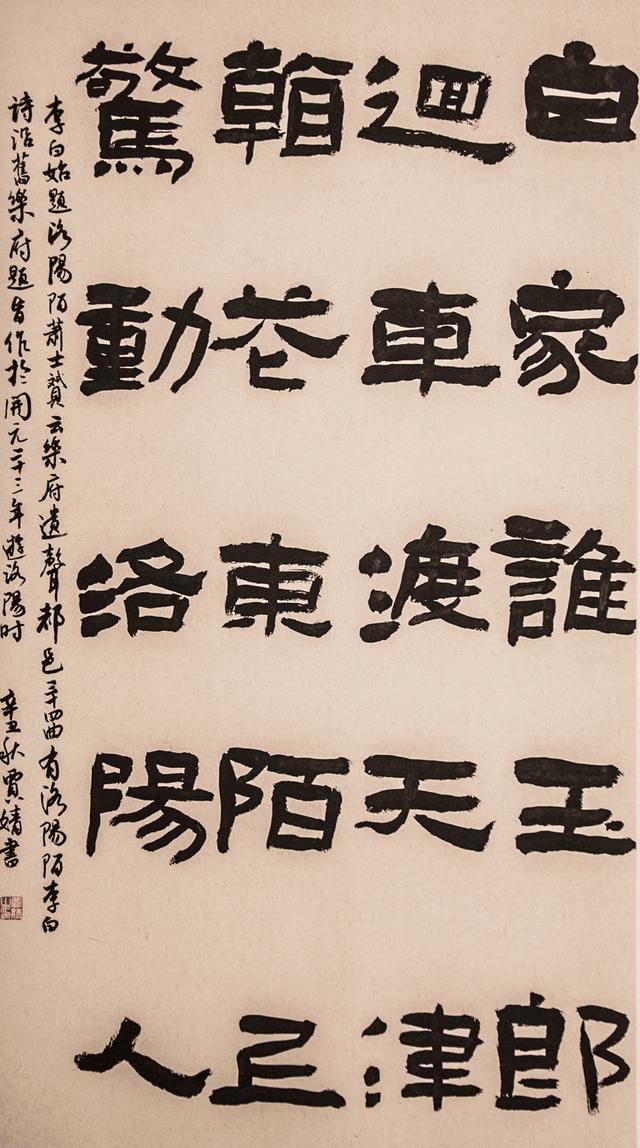 白家誰玉郎
迴車渡天津
看花東陌上
驚動洛陽人
李白始題洛陽陌蕭士贇云樂府遺聲都邑三十四曲有洛陽陌李白
詩沿舊樂府題作於開元二十三年遊洛陽時 辛丑秋賈婧書